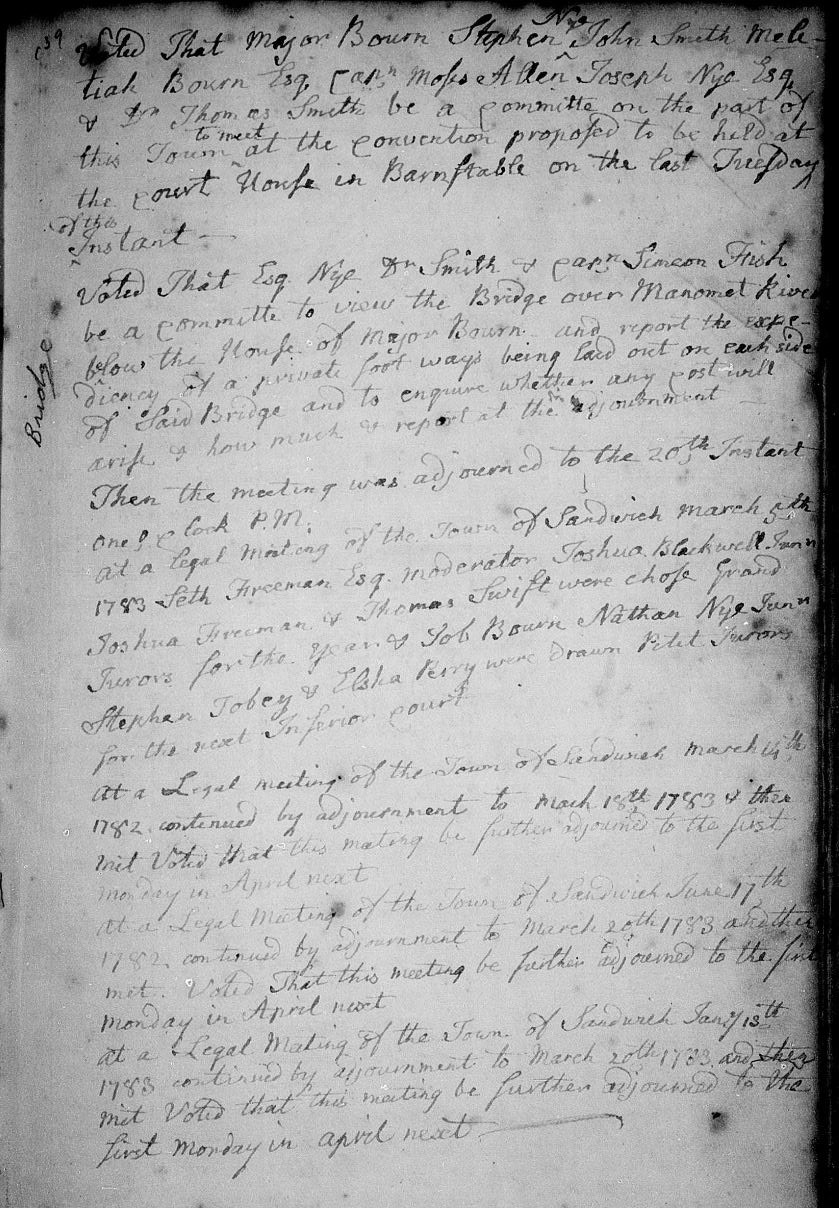 59
Voted That Major Bourn Stephen Nye John Smith Mele-
tiah Bourn Esq. Capn Moses Allen Joseph Nye Esq.
& Dr Thomas Smith be a Committe on the part of
this Town to meet at the Convention proposed to be held at
the Court House in Barnstable on the last Tuesday
of this
Instant —
Voted That Esq. Nye Dr Smith & Capn Simeon Fish
be a Committe to view the Bridge over Manomet River
Bridge
blow the House of Major Bourn and report the expe-
diency of a private foot ways being laid out on each side
of Said Bridge and to enquire whether any Cost will
arise & how much & report at the adjournment —
Then the meeting was adjourned to the 20th Instant
one o Clock P.M.
at a legal Meeting of the Town of Sandwich March 5th
1783 Seth Freeman Esq. moderator Joshua Blackwell Junr
Joshua Freeman & Thomas Swift were chose Grand
Jurors for the Year & Job Bourn Nathan Nye Junr
Stephen Tobey & Elsha Perry were drawn Petit Jurors
for the next Inferior Court
at a Legal meeting of the Town of Sandwich March 14th
1782 continued by adjournment to Mach 18th 1783 & then
met Voted that this meeting be further adjourned to the first
monday in April next
at a Legal Meeting of the Town of Sandwich June 17th
1782 continued by adjournment to March 20th 1783 and then
met. Voted That this meeting be further adjourned to the first
monday in April next
at a Legal Meating of the Town of Sandwich Jany 13th
1783 continued by adjournment to March 20th 1783 and then
met Voted that this meeting be further adjourned to the
first Monday in april next —